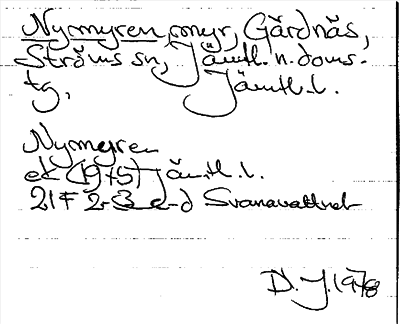 Nymyren, myr, Gärdnäs,
Ströms sn, Jämtl. n. doms.
tg, Jämtl. l.
Nymyren
ek (1945) Jämtl. l.
21F 2-3 c-d Svanavattnet
D. J. 1978